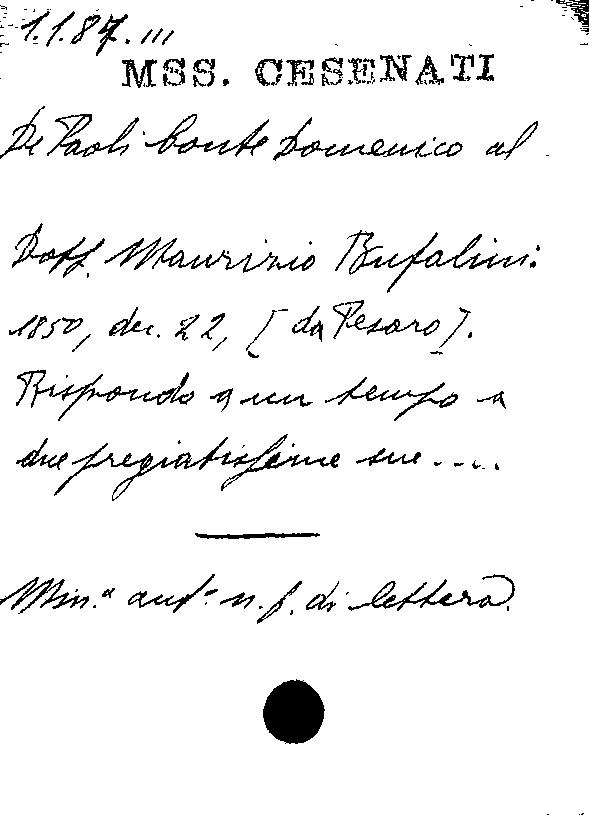 1.1.87.III
MSS. CESENATI
De Paoli Conte Domenico al
Dott. Maurizio Bufalini:
1850, dec. 22, [da Pesaro].
Rispondo a un tempo a
due pregiatissime sue....
Min.ª aut.ª n. f. di lettera.